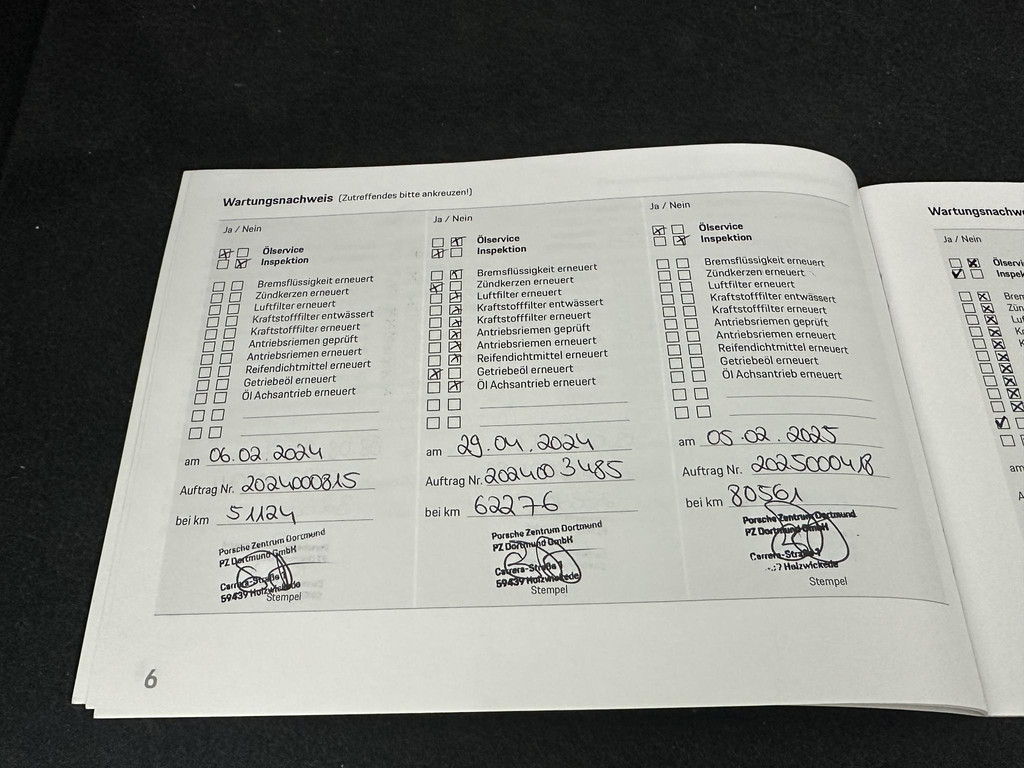 Wartungsnachweis (Zutreffendes bitte ankreuzen!)
Ja / Nein
Ölservice
Inspektion
Bremsflüssigkeit erneuert
Zündkerzen erneuert
Luftfilter erneuert
Kraftstofffilter entwässert
Kraftstofffilter erneuert
Antriebsriemen geprüft
Antriebsriemen erneuert
Reifendichtmittel erneuert
Getriebeöl erneuert
Öl Achsantrieb erneuert
am 06.02.2024
Auftrag Nr. 2024000815
bei km 51124
Porsche Zentrum Dortmund
PZ Dortmund GmbH
Carrera-Straße 1
59439 Holzwickede
Stempel
Ja / Nein
Ölservice
Inspektion
Bremsflüssigkeit erneuert
Zündkerzen erneuert
Luftfilter erneuert
Kraftstofffilter entwässert
Kraftstofffilter erneuert
Antriebsriemen geprüft
Antriebsriemen erneuert
Reifendichtmittel erneuert
Getriebeöl erneuert
Öl Achsantrieb erneuert
am
Auftrag Nr. 2024003485
bei km 62276
Porsche Zentrum Dortmund
PZ Dortmund GmbH
Carrera-Straße 1
59439 Holzwickede
Stempel
Ja / Nein
Ölservice
Inspektion
Bremsflüssigkeit erneuert
Zündkerzen erneuert
Luftfilter erneuert
Kraftstofffilter entwässert
Kraftstofffilter erneuert
Antriebsriemen geprüft
Antriebsriemen erneuert
Reifendichtmittel erneuert
Getriebeöl erneuert
Öl Achsantrieb erneuert
am 05.02.2025
Auftrag Nr. 2025000418
bei km 80561
Porsche Zentrum Dortmund
PZ Dortmund GmbH
Carrera-Straße 1
Holzwickede
Stempel
6
Ja / Nein
am